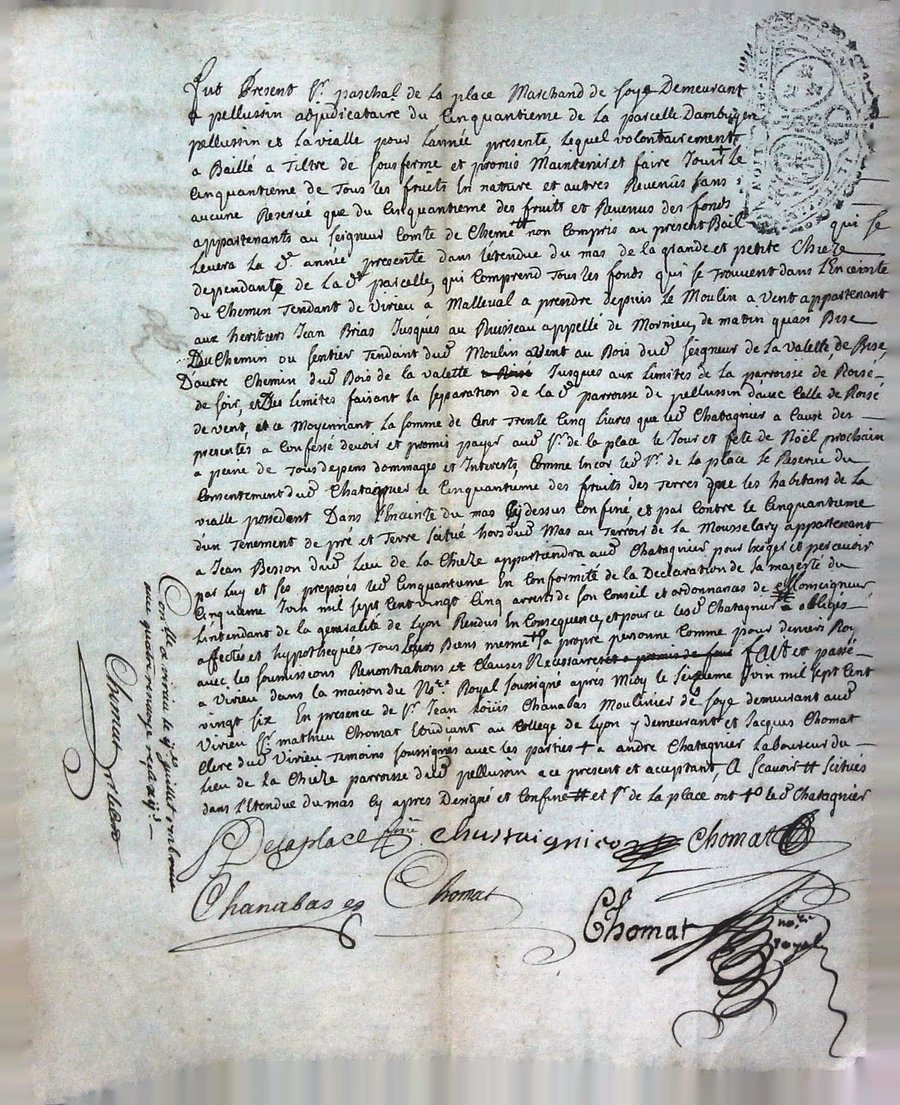 Fut Present Sr. paschal de La place Marchand de soye Demeurant
a pellussin adjudicataire du Cinquantieme de La parcelle Dambuyen
pellussin et La vialle pour Lannée presente, Lequel volontairement
a Baillé a Tiltre de sousferme et promis Maintenir et faire Jouir Le
Cinquantieme de Tous Les fruits En nature et autres Revenus sans
aucune Reserve que du Cinquantieme des fruits et Revenus des fonds
appartenants au seigneur Comte de non Compris au present Bail qui se
Levera La de année presente dans L'étendue du mas de La grande et petite Chieze
dependante de La de parcelle, qui Comprend Tous Les fonds qui se Trouvent dans L'Enceinte
du Chemin Tendant de Virieu a Malleval a prendre depuis Le Moulin a Vent appartenant
aux heritiers Jean Brias Jusques au Ruisseau appellé de Mornieu, de matin quasi Bise
Du Chemin ou sentier Tendant dud Moulin avent au Bois dud seigneur de La valette, de Bise,
D'autre Chemin dud Bois de La valette Jusques aux Limites de La parroisse de Roisé
de soir, et Des Limites faisant La separation de La de parroisse de pellussin davec Celle de Roisé
de vent, et ce Moyennant La somme de Cent Trente Cinq Livres que Led Chatagnier a Cause des
presentes a Confessé devoir et promis payer aud Sr. de la place Le Jour et fete de Noël prochain
a peine de Tous depens dommages et Interests, Comme Encor Led Sr. de La place se Reserve du
Consentement dud Chatagnier Le Cinquantieme des fruits des Terres que Les habitans de La
vialle possedent Dans L'Enceinte du mas Cy dessus Confiné et par Contre Le Cinquantieme
d'un Tenement de pre et Terre scitué hors dud Mas au Terroir de La Mousselary appartenant
a Jean Besson dud Lieu de La Chieze appartiendra aud Chatagnier pour Exiger et percevoir
par Luy et ses preposés Led Cinquantieme En Conformité de La Declaration de sa majesté du
Cinquieme Juin mil sept Cent vingt Cinq arrests de son Conseil et ordonnances de Monseigneur
L'intendant de La generalité de Lyon Rendus En Consequence, et pour ce Led Chatagnier a obligés
affectés et hypothequés Tous Biens mesme sa propre personne Comme pour deniers Roy
avec Les soumissions Renontiations et Clauses Necessaires fait et passé
a Virieu dans La maison du Nore. Royal soussigné apres Midy Le seizieme Juin mil sept Cent
vingt six En presence de Sr. Jean Loüis Chanabas Moulinier de soye demeurant aud
Virieu Sr. mathieu Chomat Etudiant au College de Lyon y demeurant et Jacques Chomat
Clerc dud Virieu Temoins soussignés avec Les parties + a andre Chatagnier Laboureur du
Lieu de La Chieze parroisse dud pellussin a ce present et acceptant, A scavoir # scitués
dans L'Etendue du mas Cy apres Designé et Confiné # et Sr. de La place ont Led Chatagnier
Delaplace Chattaignier Chomat
Chanabas Chomat
Chomat nore. royal
Conllé a virieu le juillet
avec quatre renvoye
Chomat